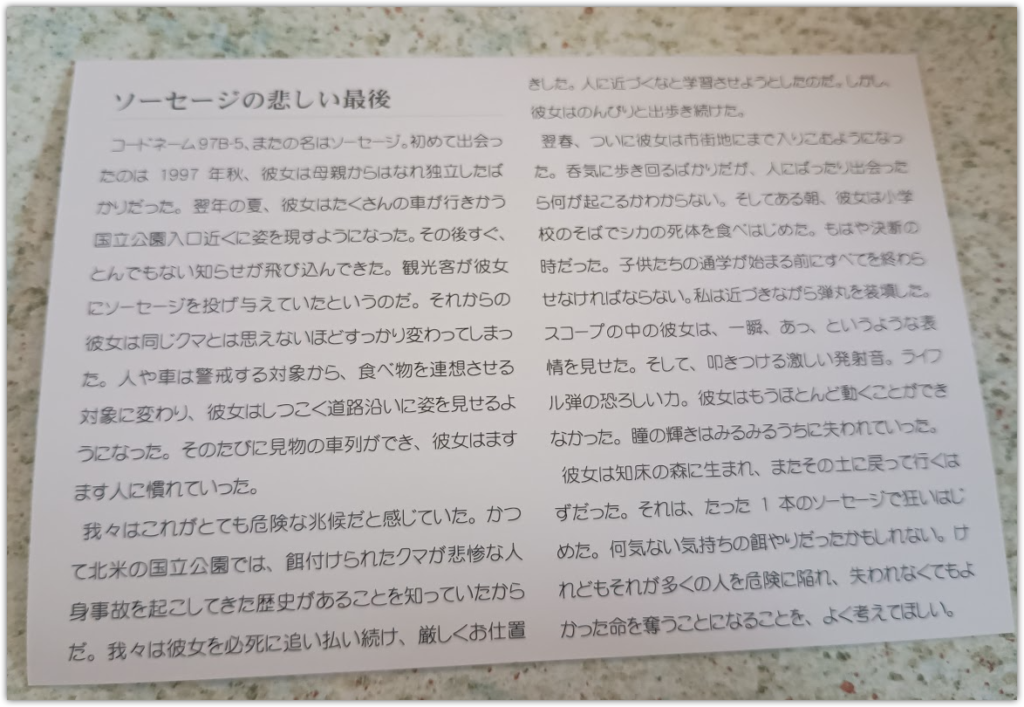 ソーセージの悲しい最後
コードネーム97B-5、またの名はソーセージ。初めて出会っ
たのは 1997 年秋、彼女は母親からはなれ独立したば
かりだった。翌年の夏、彼女はたくさんの車が行きかう
国立公園入口近くに姿を現すようになった。その後すぐ、
とんでもない知らせが飛び込んできた。観光客が彼女
にソーセージを投げ与えていたというのだ。それからの
彼女は同じクマとは思えないほどすっかり変わってしまっ
た。人や車は警戒する対象から、食べ物を連想させる
対象に変わり、彼女はしつこく道路沿いに姿を見せるよ
うになった。そのたびに見物の車列ができ、彼女はます
ます人に慣れていった。
我々はこれがとても危険な兆候だと感じていた。かつ
て北米の国立公園では、餌付けられたクマが悲惨な人
身事故を起こしてきた歴史があることを知っていたから
だ。我々は彼女を必死に追い払い続け、厳しくお仕置
きした。人に近づくなと学習させようとしたのだ。しかし、
彼女はのんびりと出歩き続けた。
翌春、ついに彼女は市街地にまで入りこむようになっ
た。呑気に歩き回るばかりだが、人にばったり出会った
ら何が起こるかわからない。そしてある朝、彼女は小学
校のそばでシカの死体を食べはじめた。もはや決断の
時だった。子供たちの通学が始まる前にすべてを終わら
せなければならない。私は近づきながら弾丸を装填した。
スコープの中の彼女は、一瞬、あっ、というような表
情を見せた。そして、叩きつける激しい発射音。ライフ
ル弾の恐ろしい力。彼女はもうほとんど動くことができ
なかった。瞳の輝きはみるみるうちに失われていった。
彼女は知床の森に生まれ、またその土に戻って行くは
ずだった。それは、たった 1 本のソーセージで狂いはじ
めた。何気ない気持ちの餌やりだったかもしれない。け
れどもそれが多くの人を危険に陥れ、失われなくてもよ
かった命を奪うことになることを、よく考えてほしい。